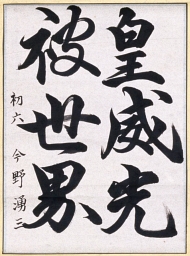 皇威光
被世界
初六 今野湧三